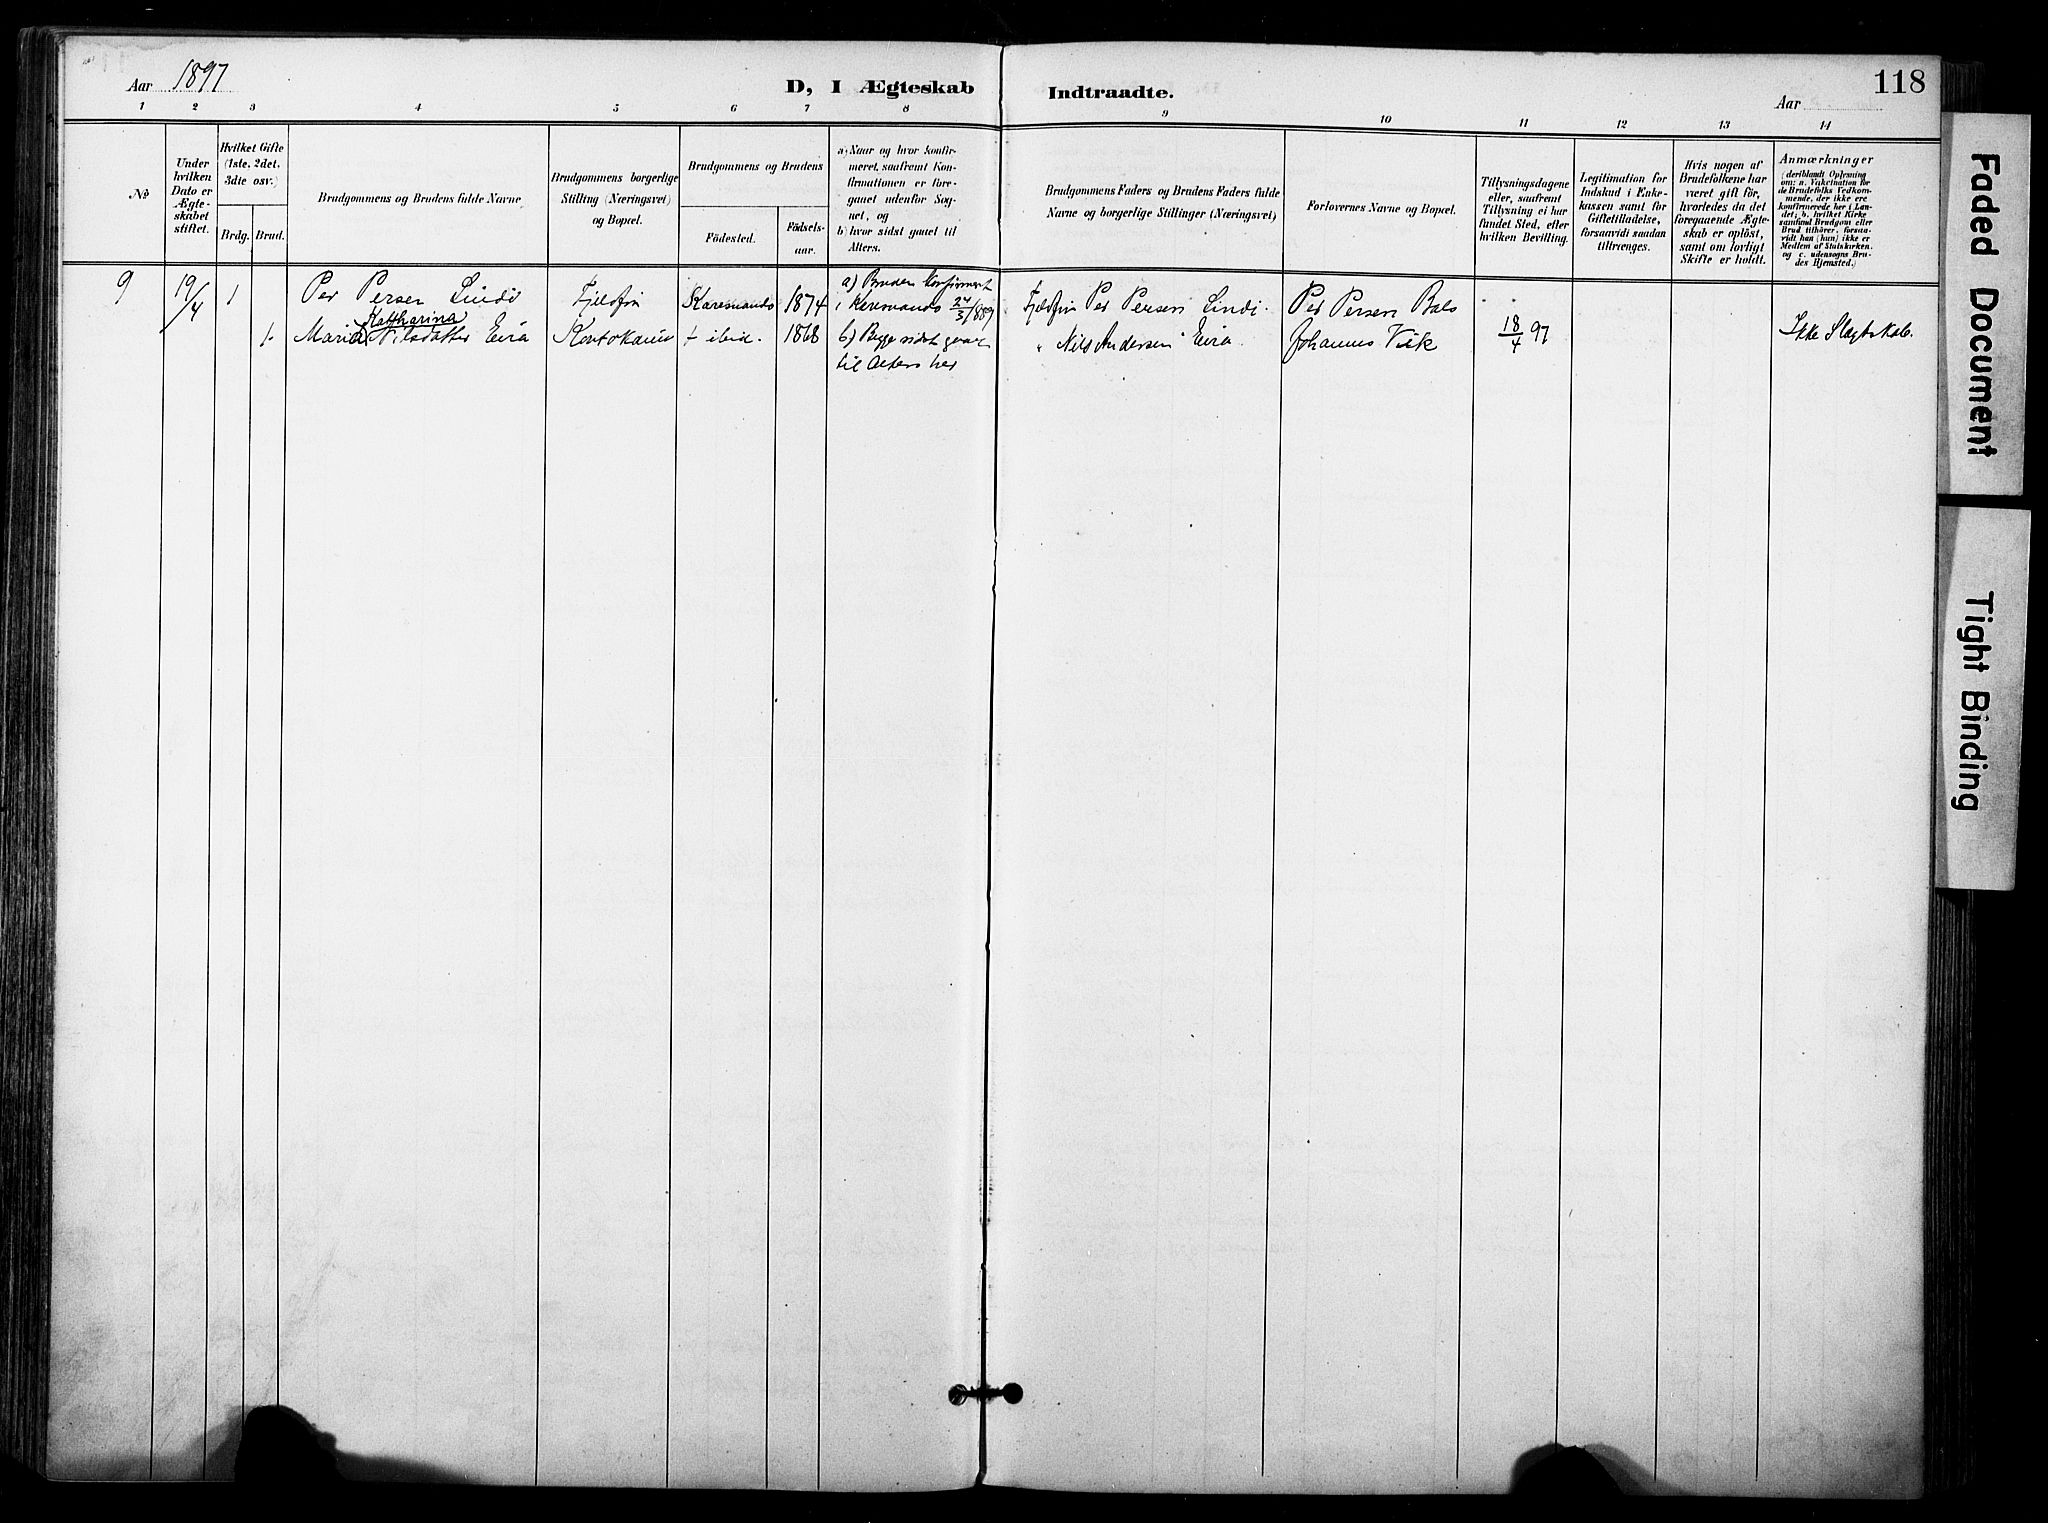 Aar 1897
D, I Ægteskab Indtraadte.
Aar
118
1 2 3 4 5 6 7 8 9 10 11 12 13 14
No
Under hvilken Dato er Ægteskabet stiftet.
Hvilket Gifte (1ste. 2det. 3die osv.)
Brdg. Brud.
Brudgommens og Brudens fulde Navne.
Brudgommens borgerlige Stilling (Næringsvei) og Bopæl.
Brudgommens og Brudens
Födested. Födsels-aar.
a) Naar og hvor konfirmeret, saafremt Konfirmationen er foregaaet udenfor Sognet, og
b) hvor sidst gaaet til Alters.
Brudgommens Faders og Brudens Faders fulde Navne og borgerlige Stillinger (Næringsvei)
Forlovernes Navne og Bopæl.
Tillysningsdagene eller, saafremt Tillysning ei har fundet Sted, efter hvilken Bevilling.
Legitimation for Indskud i Enkekassen samt for Giftetilladelse, forsaavidt saadan tiltrænges.
Hvis nogen af Brudefolkene har været gift för, hvorledes da det foregaaende Ægteskab er oplöst, samt om lovligt Skifte er holdt.
Anmærkninger (deriblandt Oplysning om: a. Vakcination for de Brudefolks Vedkommende, der ikke ere konfirmerede her i Landet; b. hvilket Kirkesamfund Brudgom eller Brud tilhörer, forsaavidt han (hun) ikke er Medlem af Statskirken. og c. udensogns Brudes Hjemsted.)
9 19/4 1 Per Persen Lindi Fjeldfin Karesuando 1874 a) Bruden konfirmeret Fjeldfin Per Persen Lindi. Per Persen Bals
Katharina i Karesuando 24/3/889
1. Maria Nilsdatter Eira Koutokeino ÷ ibid. 1868 b) Begge sidst gaaet " Nils Andersen Eira. Johannes Vik 18/4 97 Ikke Slægtskab.
til Alters her
Faded Document
Tight Binding